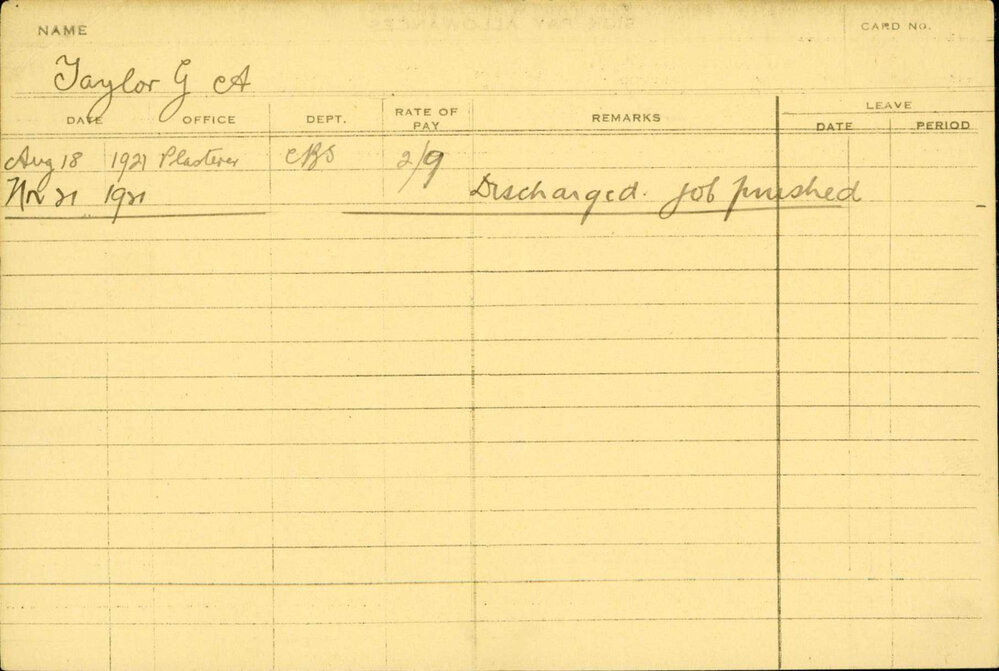 NAME CARD NO.
Taylor G A
DATE OFFICE DEPT. RATE OF PAY REMARKS LEAVE
DATE PERIOD
Aug 18 1921 Plasterer CBS 2/9
Nov 21 1921 Discharged. job finished